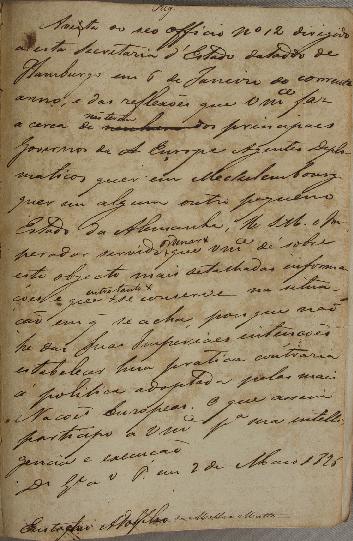 A vista do seo officio Nº 12 dirigido
a esta Secretaria d'Estado datado de
Hamburgo em 6 de Janeiro do corrente
anno, e das reflexões que Vmce faz
a cerca de nos principaes
Governos de A Europa Agentes Diplo-
maticos quer em Mecklembourg
quer em algum outro pequeno
Estado da Alemanha, He S.M. o Im-
perador servido que Vmce dê sobre
este objecto mais detalhadas informa-
ções, e que entretanto se conserve na situa-
ção em q se acha, pois que não
he das Suas Imperiaes intenções
estabelecer huma pratica contraria
á politica adoptada pelas mais
Nações Europeas. O que assim
participo a Vmce pª sua intelli-
gencia e execução
Ds Gde a V P. em 2 de Maio 1826